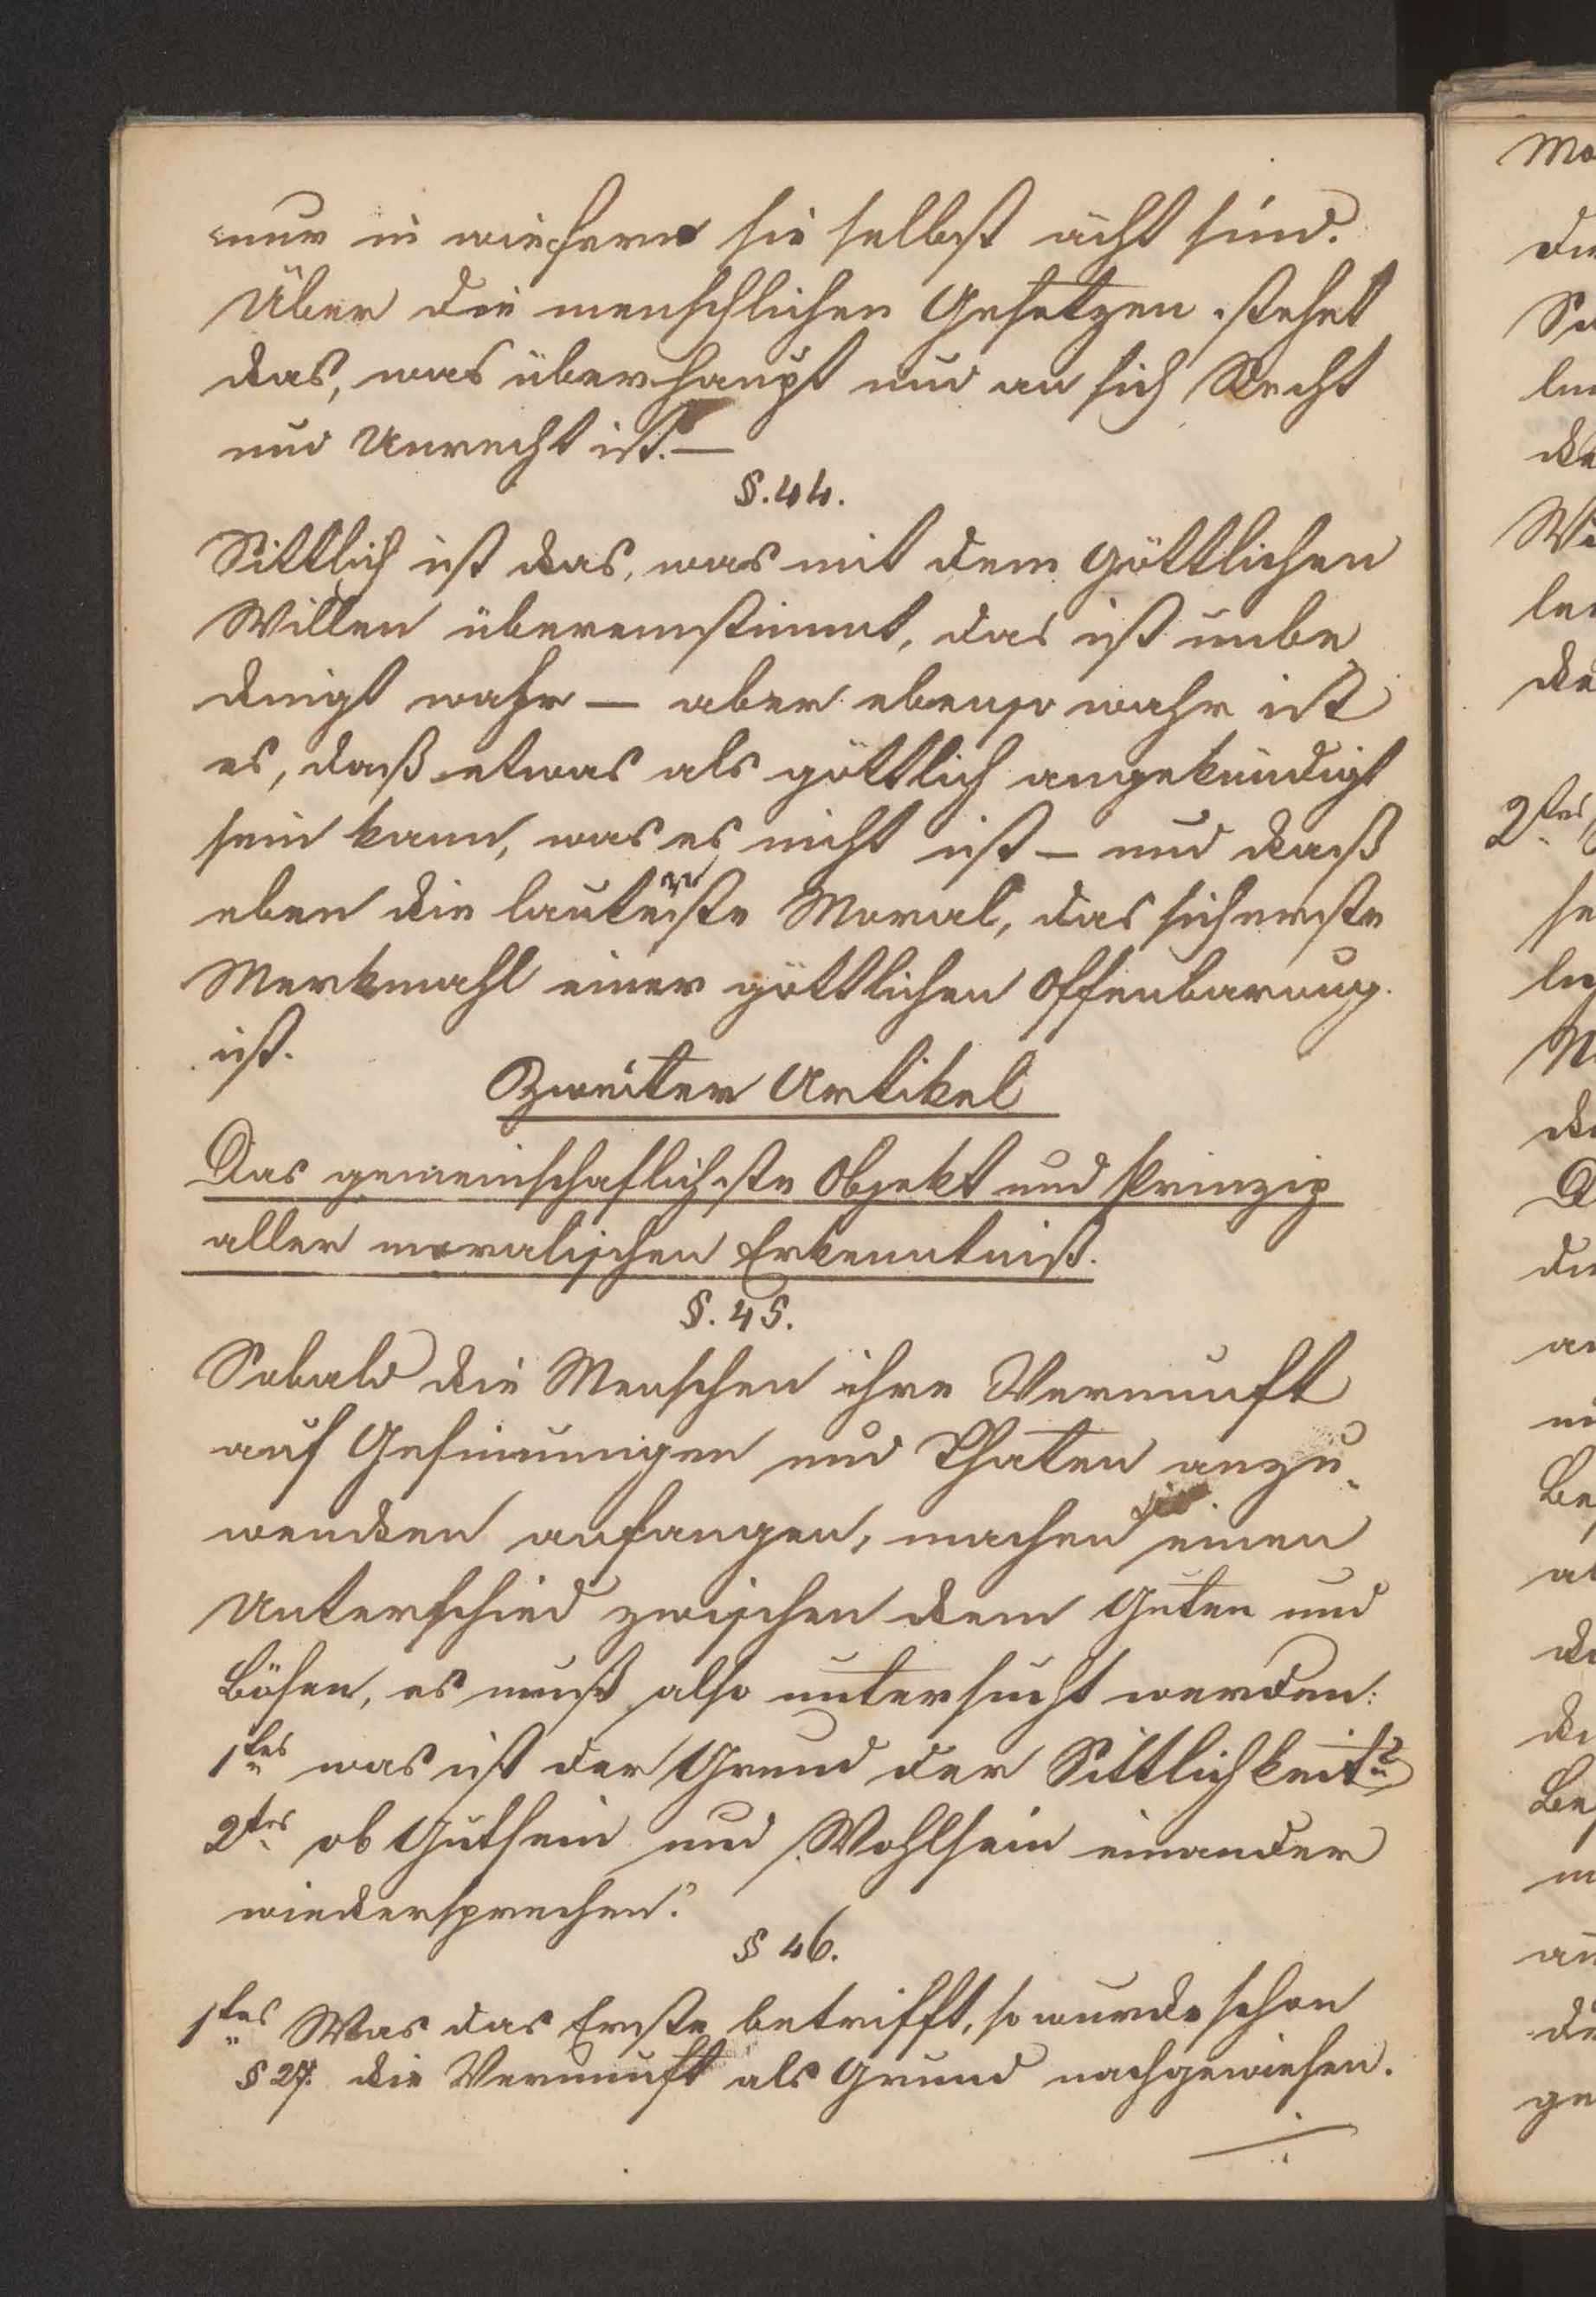 nur in wiefern sie selbst ächt sind.
Über die menschlichen Gesetzen stehet
das, was überhaupt und an sich Recht
und Unrecht ist. —
§. 44.
Sittlich ist das, was mit dem göttlichen
Willen übereinstimmt, das ist unbe
dingt wahr — aber ebenso wahr ist
es, daß etwas als göttlich angekündigt
sein kann, was es nicht ist — und daß
eben die lauterste Moral, das sicherste
Merkmahl einer göttlichen Offenbarung
ist.
Zweiter Artikel
Das gemeinschaflichste Objekt und Prinzip
aller moralischen Erkenntniß.
§. 45.
Sobald die Menschen ihre Vernunft
auf Gesinnungen und Thaten anzu-
wenden anfangen, machen sie einen
Unterschied zwischen dem Guten und
Bösen, es muß also untersucht werden:
1tes was ist der Grund der Sittlichkeit?
2tes ob Gutsein und Wohlsein einander
wiedersprechen?
§ 46.
1tes Was das Erste betrifft, so wurde schon
§ 27. die Vernunft als Grund nachgewiesen.
Mo
die
lich
2tes
ge